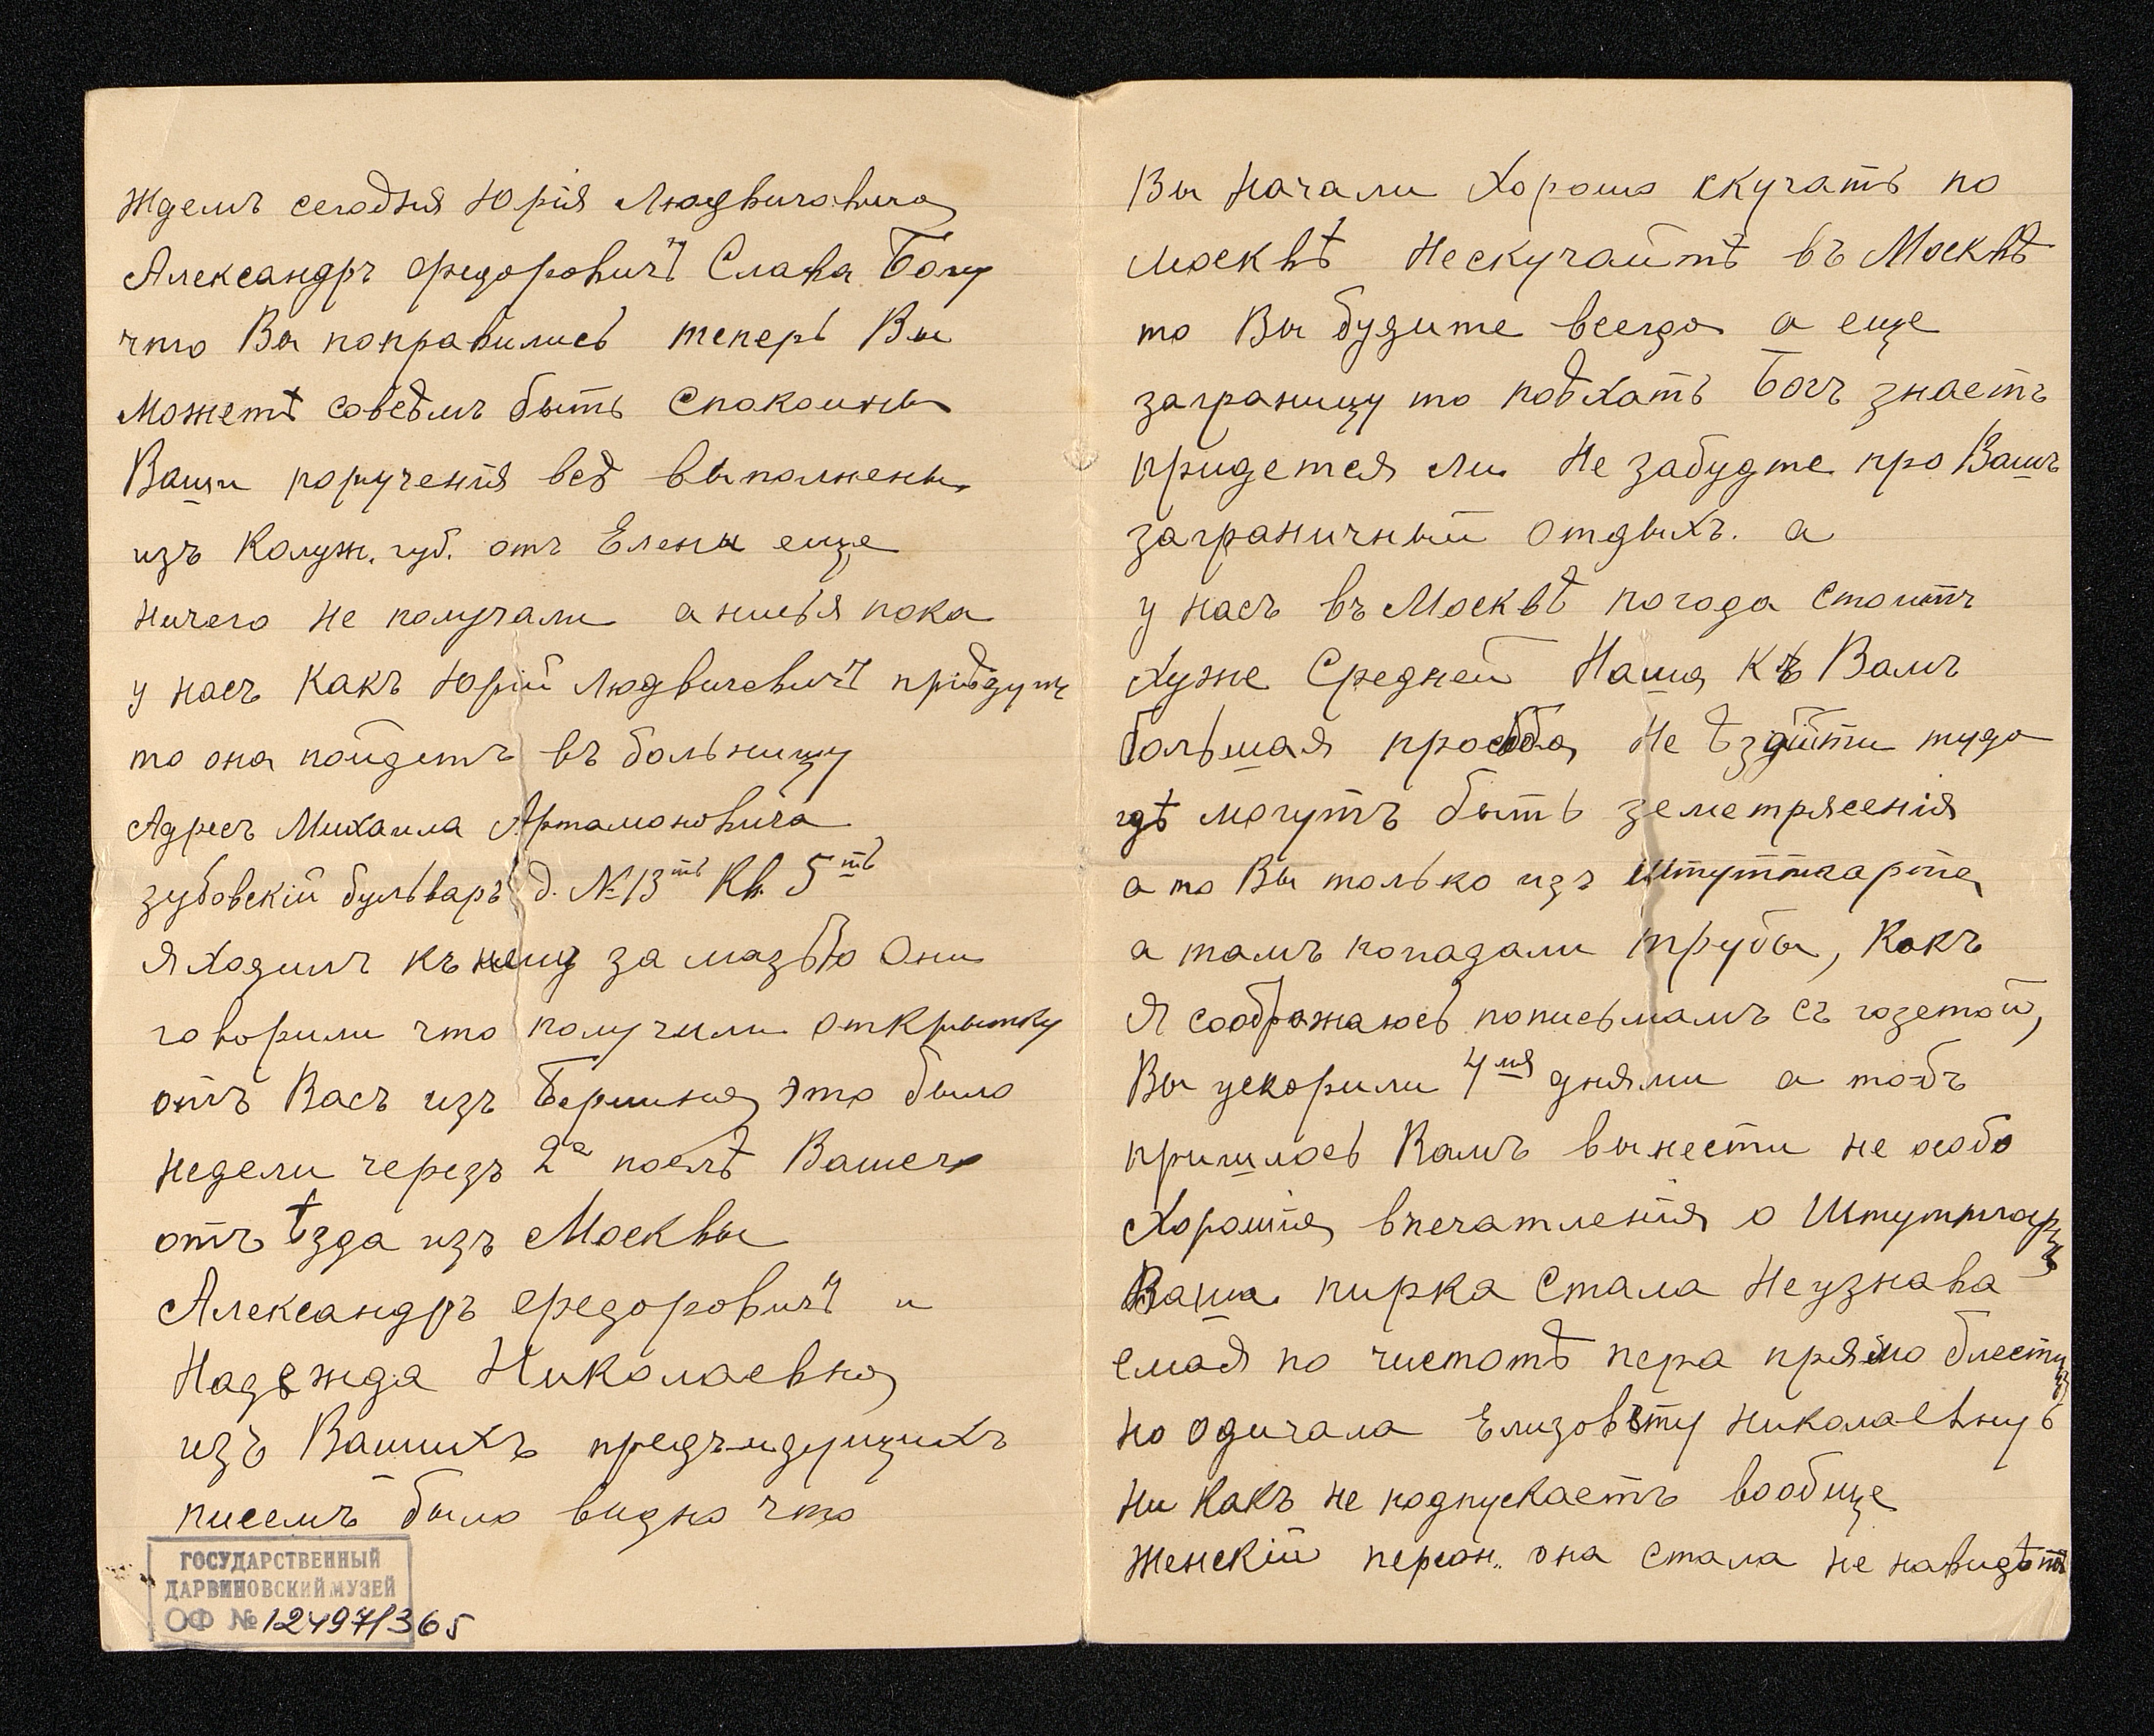 Ждемъ сегодня Юрія Людвиговича
Александръ Федоровичъ Слава Богу
что Вы поправились теперь Вы
Можетѣ совсѣмъ быть Спокойны
Ваши порученія всѣ выполнены
изъ Калуж. губ. отъ Елены еще
ничего не получали а
у насъ Какъ Юрій Людвиговичъ пріѣдутъ
то она пойдетъ въ больницу
Адресъ Михаила Артамоновича
зубовскій бульваръ д. № 13тъ Кв. 5тъ
Я ходилъ къ нему за мазью Они
говорили что получили открытку
отъ Васъ изъ Берлина это было
недели черезъ 2а послѣ Вашего
отъ ѣзда изъ Москвы
Александръ Федоровичъ и
Надежда Николаевна
изъ Вашихъ предъидущихъ
писемъ было видно что
ГОСУДАРСТВЕННЫЙ
ДАРВИНОВСКИЙ МУЗЕЙ
ОФ № 12497/365
Вы Начали Хорошо скучать по
москвѣ Нескучайтѣ въ Москвѣ
то Вы будите всегда а еще
заграницу то поѣхать Богъ знаетъ
придется ли Не забудте про Вашъ
заграничный Отдыхъ. а
у насъ въ Москвѣ погода Стоитъ
Хуже Средней Наша Къ Вамъ
большая просьба, Не ѣздійти туда
гдѣ могутъ быть земетрясенія
а то Вы только изъ Штуттгарта
а тамъ попадали трубы, Какъ
Я соображаюсь пописьмамъ съ газетой,
Вы ускорили 4мя днями а тобъ
пришлось Вамъ вынести не особо
Хорошія впечатленія о Штуттгарт
Ваша пирка Стала Неузнава
емая по чистотѣ пера прямо блестит
но одичала Елизовѣту Николаевну
Ни Какъ не подпускаетъ вообще
Женскій персон.. она стала не навидѣть